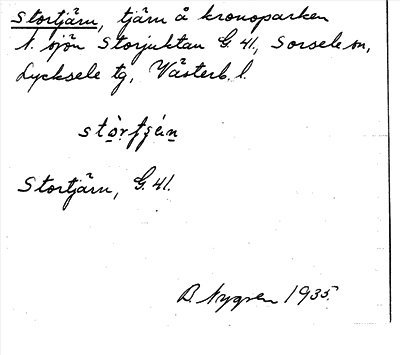 Stortjärn, tjärn å kronoparken
N. sjön Storjuktan G. 41, Sorsele sn,
Lycksele tg, Västerb. l.
Stortjärn, G. 41.
B. Nygren 1935.